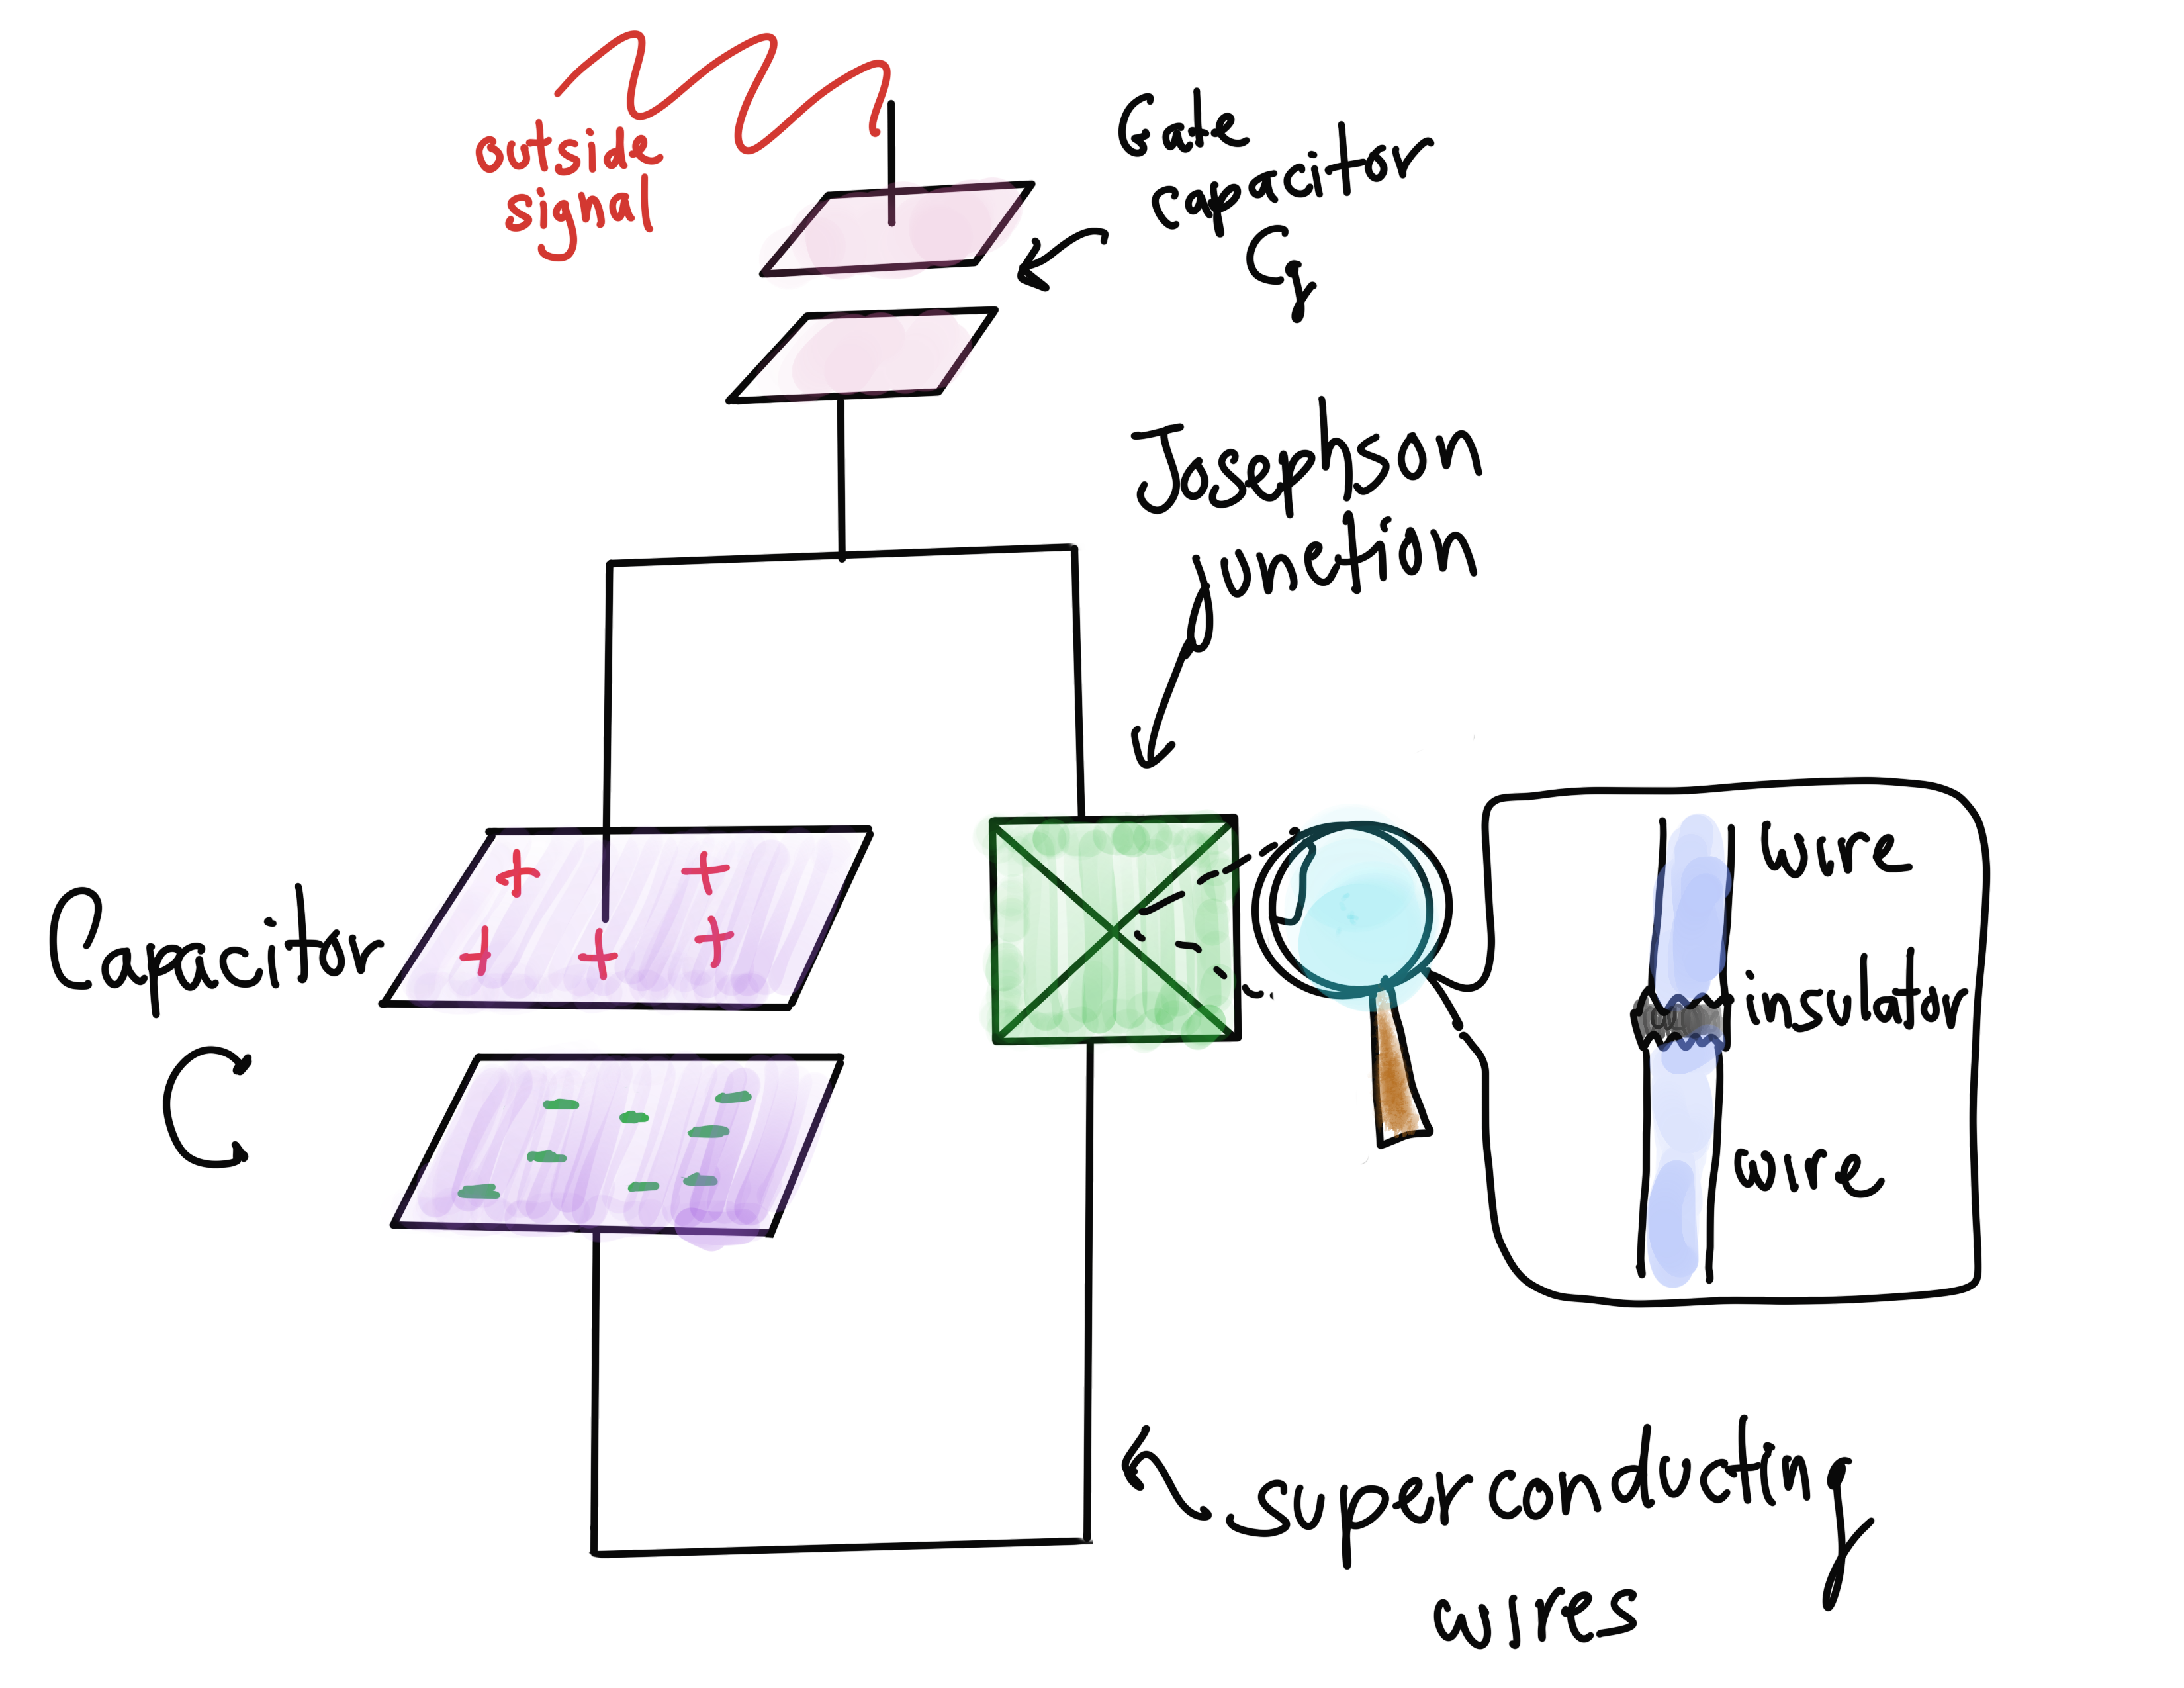 outside
signal
Gate
capacitor
Cg
Josephson
junction
Capacitor
C
wire
insulator
wire
superconducting
wires